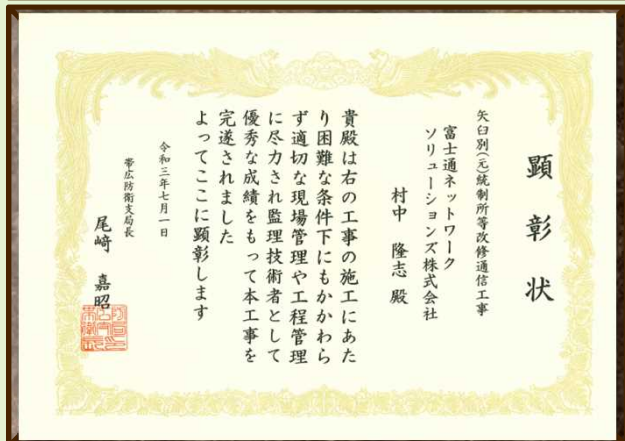 顕彰状
矢臼別(元)統制所等改修通信工事
富士通ネットワーク
ソリューションズ株式会社
村中 隆志 殿
貴殿は右の工事の施工にあた
り困難な条件下にもかかわら
ず適切な現場管理や工程管理
に尽力され監理技術者として
優秀な成績をもって本工事を
完遂されました
よってここに顕彰します
令和三年七月一日
帯広防衛支局長
尾﨑 嘉昭